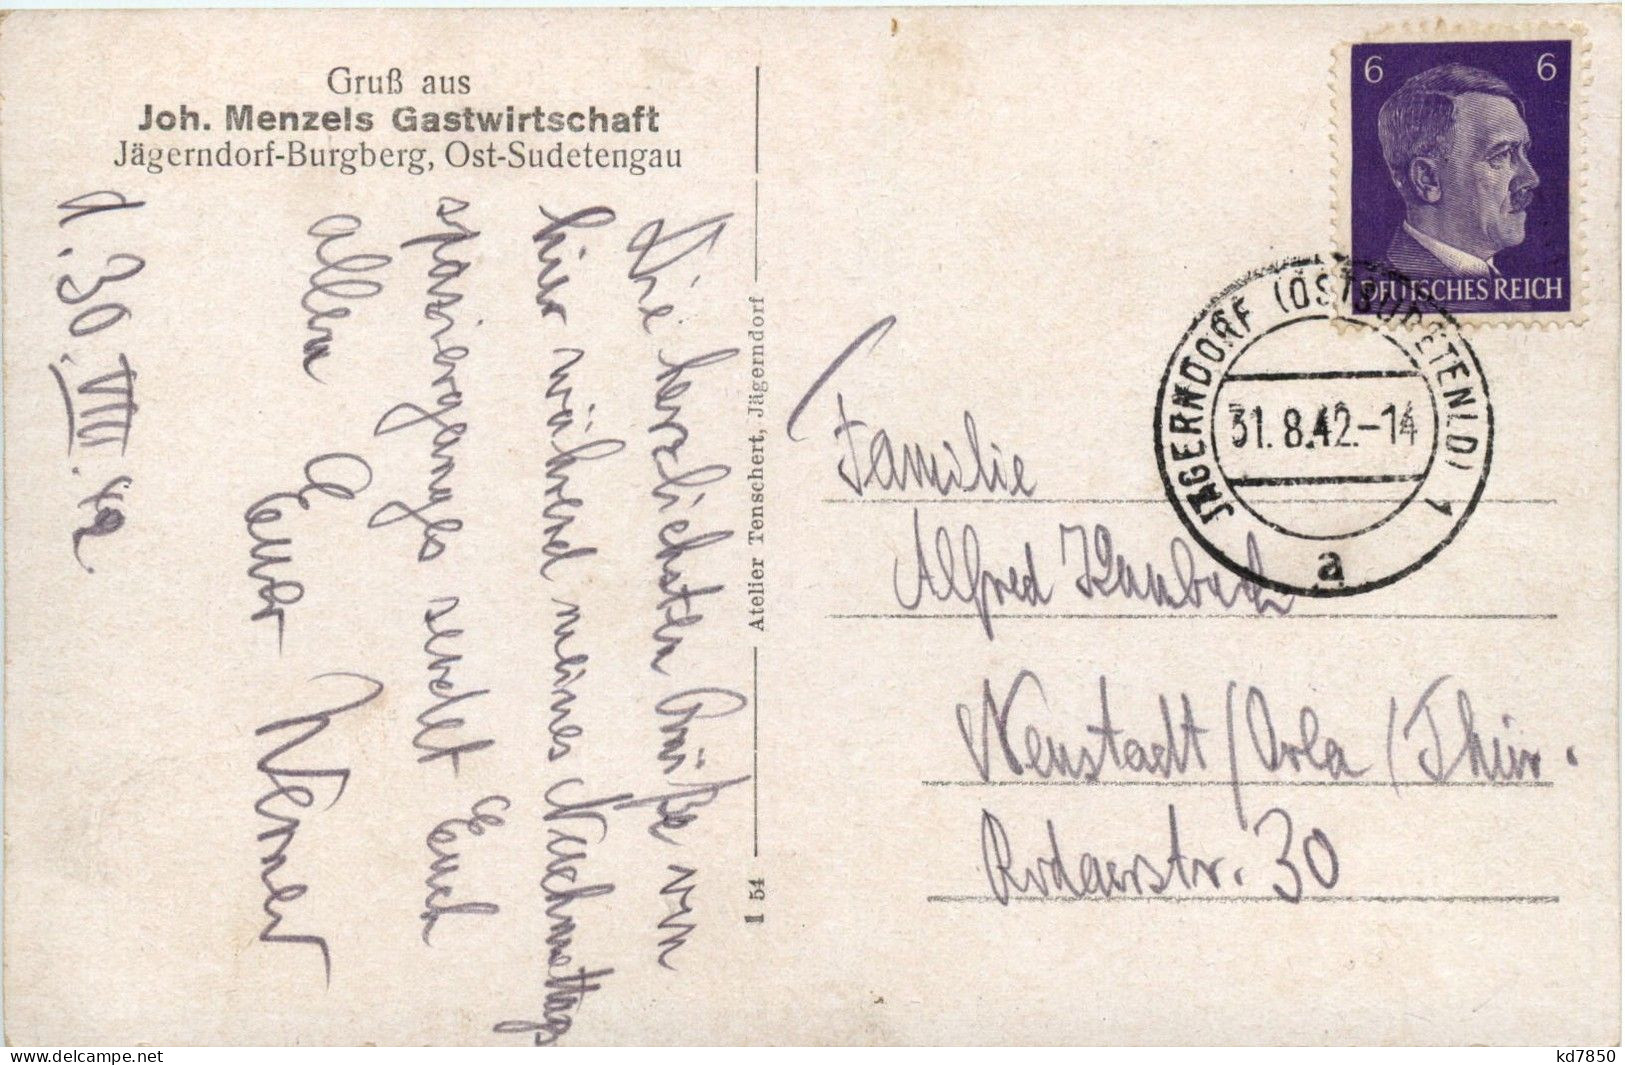 Gruß aus
Joh. Menzels Gastwirtschaft
Jägerndorf-Burgberg, Ost-Sudetengau
d. 30. VIII. 42
Die herzlichsten Grüße von
hier während meines Nachmittags
spazierganges sendet Euch
allen Euer Werner
Atelier Tenschert, Jägerndorf
1 54
6 6
DEUTSCHES REICH
JÄGERNDORF (OSTSUDETENLD) 1
31.8.42.-14
a
Familie
Alfred
Neustadt/Orla (Thür.
Rodaerstr. 30
delcampe.net
kd7850